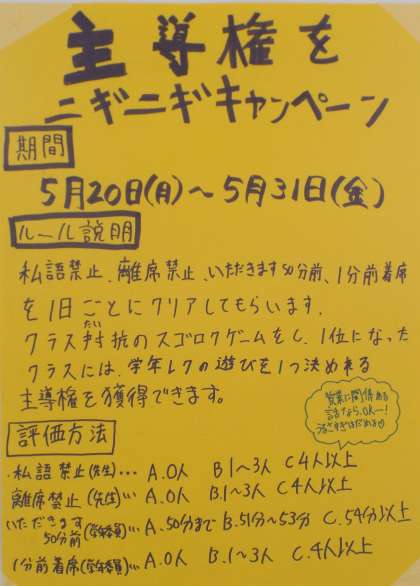 主導権を
ニギニギキャンペーン
期間
5月20日(月)～5月31日(金)
ルール説明
私語禁止、離席禁止、いただきます50分前、1分前着席
を1日ごとにクリアしてもらいます.
クラス対抗のスゴロクゲームをし、1位になった
たい
クラスには、学年レクの遊びを1つ決めれる
主導権を獲得できます。
授業に関係ある
話ならOKー!
うるさすぎはだめよ♡
評価方法
・私語禁止(先生)… A.0人 B.1〜3人 C.4人以上
離席禁止(先生)… A.0人 B.1〜3人 C.4人以上
いただきます
50分前(学年委員)… A.50分まで B.51分〜53分 C.54分以上
1分前着席(学年委員)… A.0人 B.1〜3人 C.4人以上